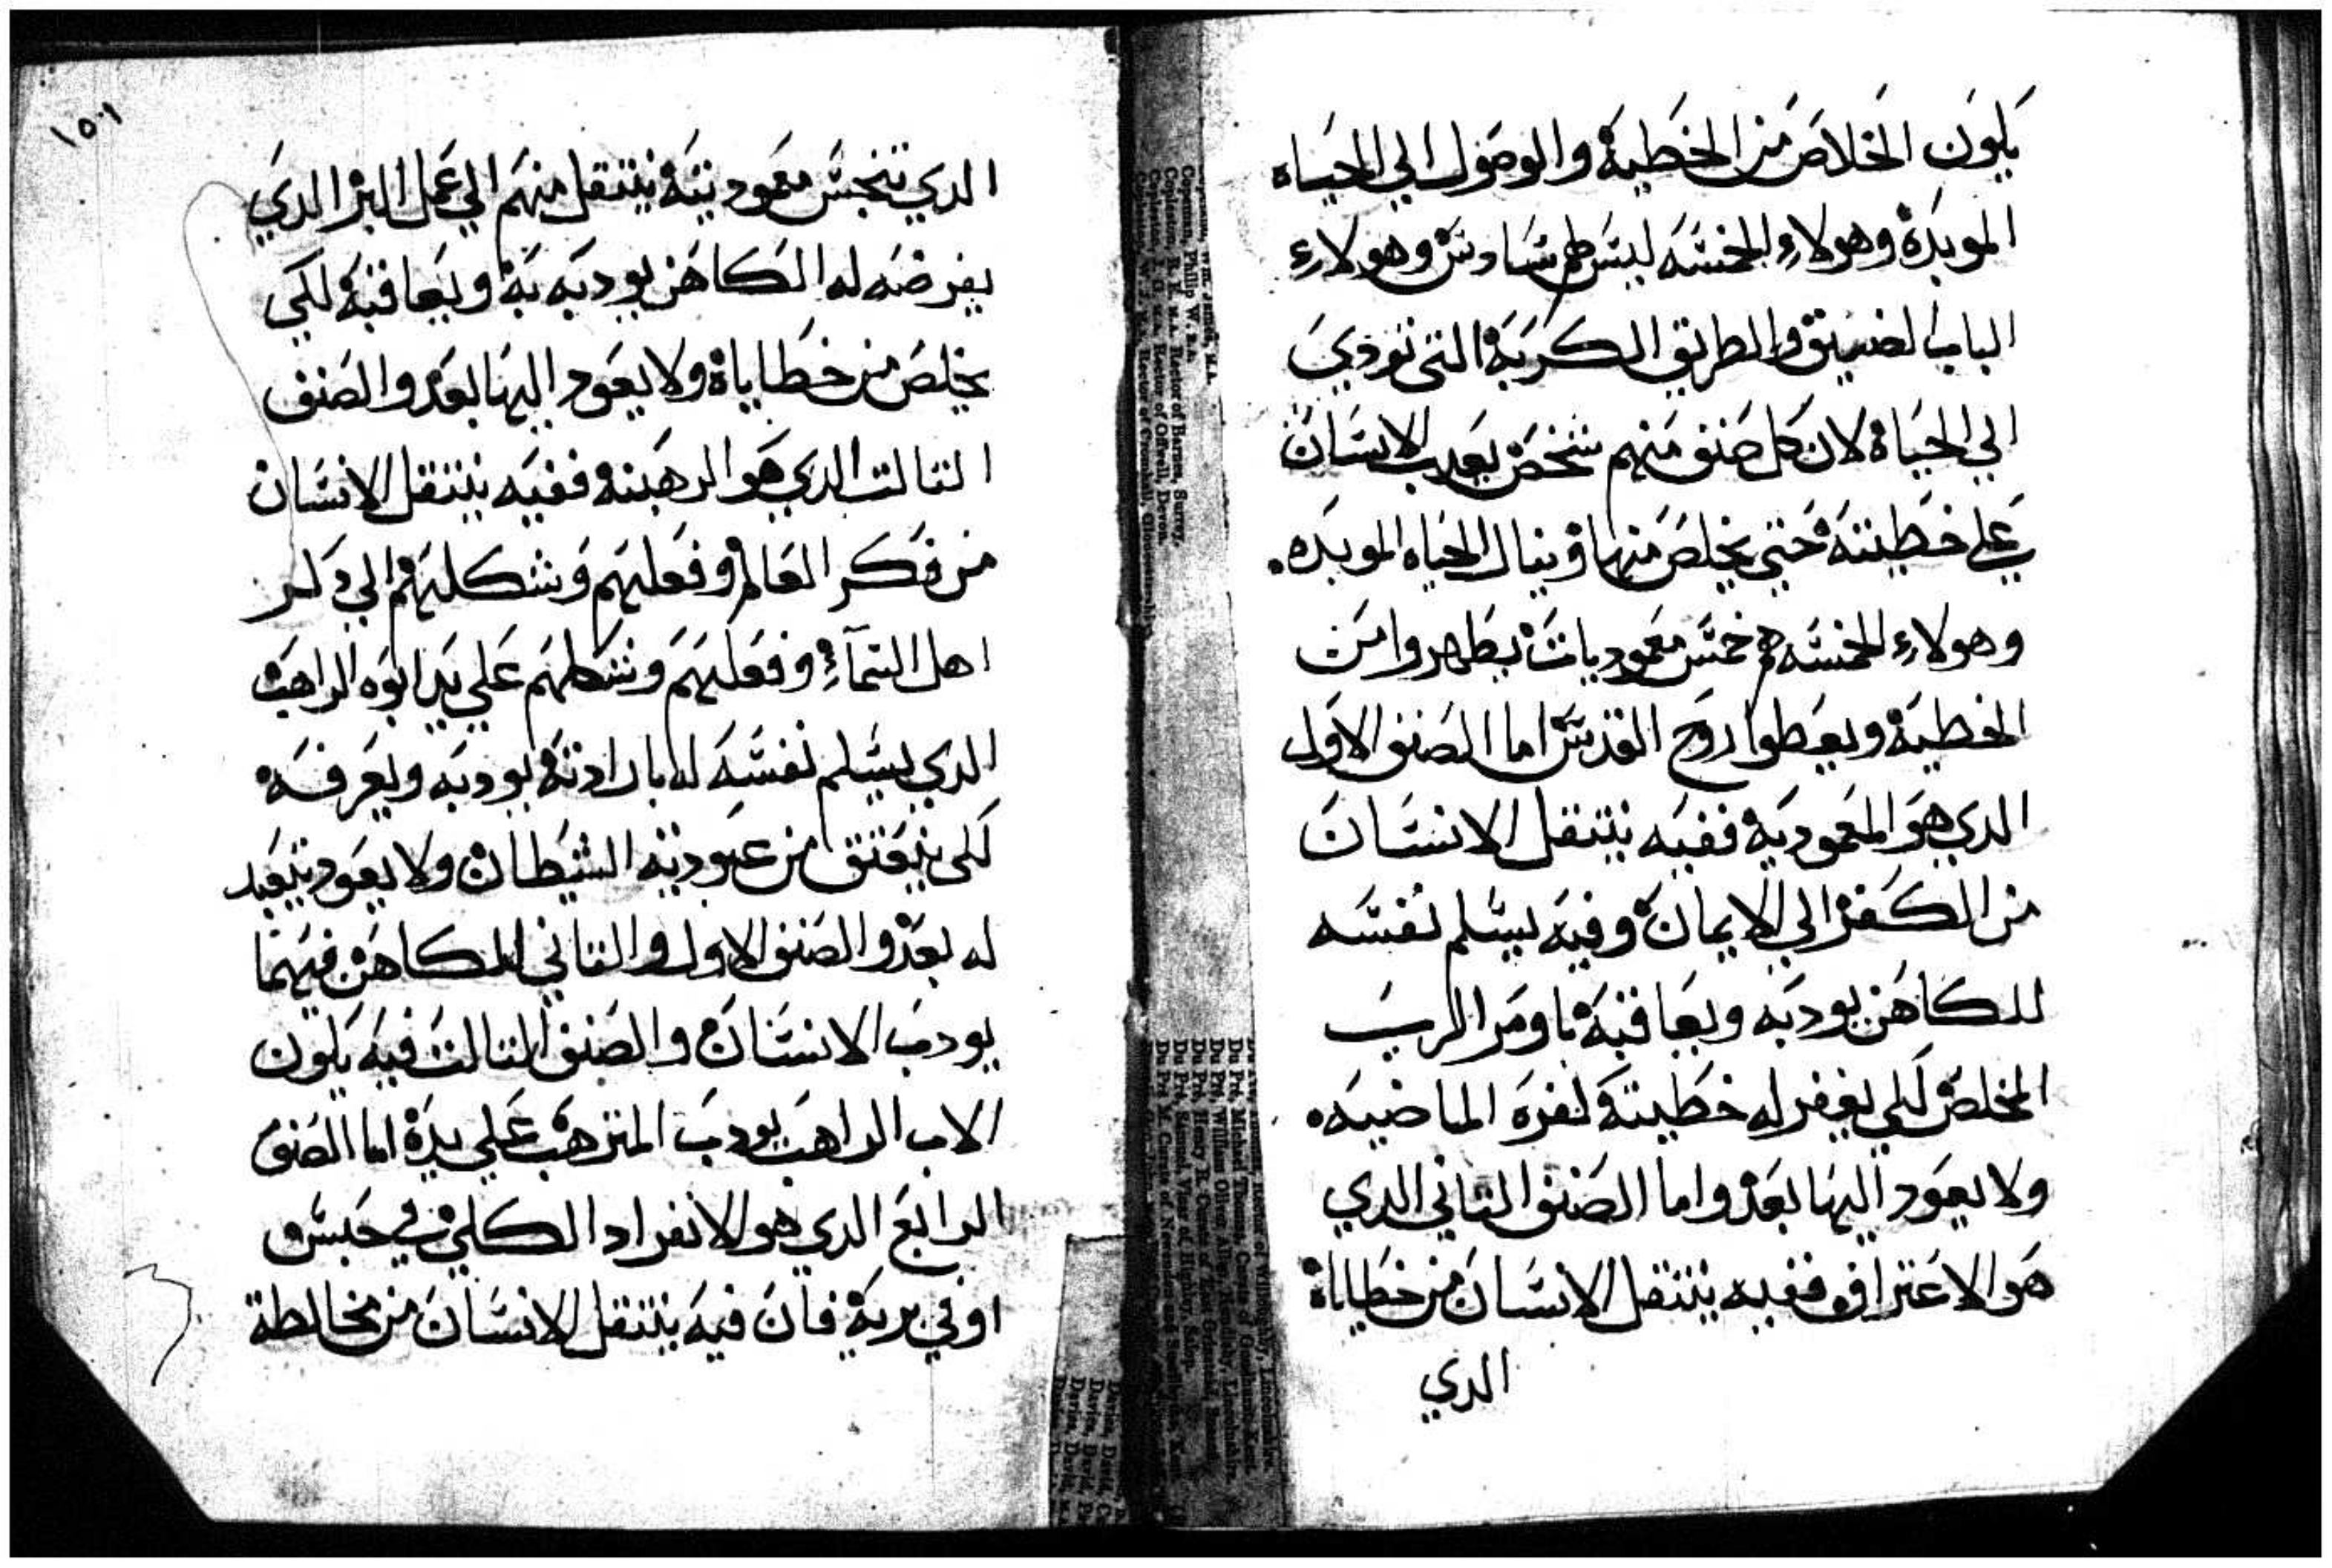 يكون الخلاص من الخطية والوصول الي الحياه
الموبدة وهولاءِ الخمسه ليس لهم سادس وهولاءِ
الباب الضيق والطريق الكربة التي تودي
الي الحياة لان كل صنف منهم شخص يعدب الانسان
علي خطيته حتي يخلص منها وينال الحياه الموبده.
وهولاءِ الخمسه هم خمس معموديات يطهروا من
الخطية ويعطوا روح القدس اما الصنف الاول
الدي هو المعمودية ففيه ينتقل الانسان
من الكفر الي الايمان وفيه يسلم نفسه
للكاهن يودبه ويعاقبه الرب
المخلص لكي يغفر له خطيته لفره الماضيه.
ولا يعود اليها بعد واما الصنف التاني الدي
هو الاعتراف ففيه ينتقل الانسان من خطاياة
الدي
١٥٦
الدي تنجس معموديته ينتقل منهم الي عمل البر الدي
يفرضه له الكاهن يودبه به ويعاقبه لكي
يخلص من خطاياة ولا يعود اليها بعد والصنف
التالت الدي هو الرهبنه ففيه ينتقل الانسان
من فكر العالم وفعلهم وشكلهم الي
اهل السمآءِ وفعلهم وشكلهم علي يد ابوه الراهب
الدي يسلم نفسه له بارادته يودبه ويعرفه
لكي ينعتق من عبودية الشيطان ولا يعود يتعبد
له بعد والصنف الاول والتاني الكاهن فيهما
يودب الانسان والصنف التالت فيه يكون
الاب الراهب يودب المترهب علي يدة اما الصنف
الرابع الدي هو الانفراد الكلي في حبس
او في برية فان فيه ينتقل الانسان من مخالطة